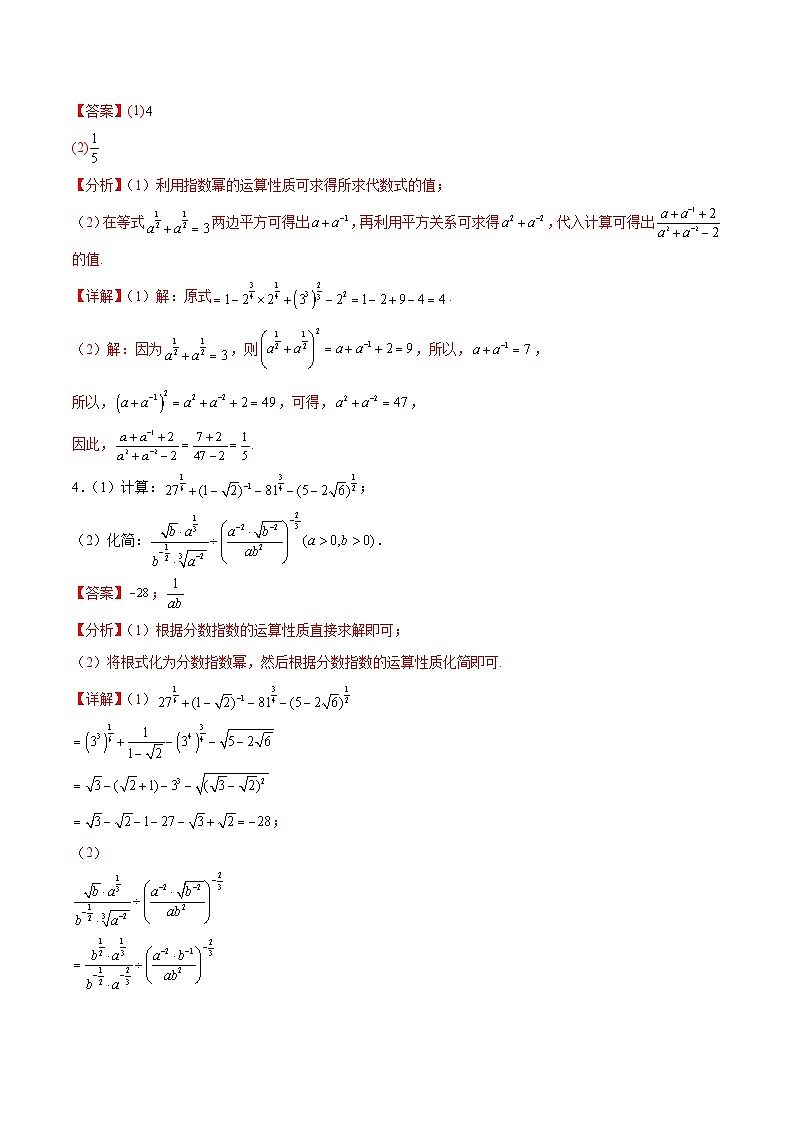 【答案】(1)4
(2)$\frac{1}{5}$
【分析】（1）利用指数幂的运算性质可求得所求代数式的值；
（2）在等式$a^{\frac{1}{2}}+a^{\frac{1}{2}}=3$两边平方可得出$a+a^{-1}$,再利用平方关系可求得$a^2+a^{-2}$,代入计算可得出$\frac{a+a^{-1}+2}{a^2+a^{-2}-2}$
的值.
【详解】（1）解：原式$=1-2^{\frac{3}{4}}\times 2^{\frac{1}{4}}+\left(3^3\right)^{\frac{2}{3}}-2^2=1-2+9-4=4$.
（2）解：因为$a^{\frac{1}{2}}+a^{\frac{1}{2}}=3$,则$\left(a^{\frac{1}{2}}+a^{\frac{1}{2}}\right)^2=a+a^{-1}+2=9$,所以,$a+a^{-1}=7$,
所以,$\left(a+a^{-1}\right)^2=a^2+a^{-2}+2=49$,可得,$a^2+a^{-2}=47$,
因此,$\frac{a+a^{-1}+2}{a^2+a^{-2}-2}=\frac{7+2}{47-2}=\frac{1}{5}$.
4.（1）计算：$27^{\frac{1}{6}}+(1-\sqrt{2})^{-1}-81^{\frac{3}{4}}-(5-2\sqrt{6})^{\frac{1}{2}}$；
（2）化简：$\frac{\sqrt{b}\cdot a^{\frac{1}{3}}}{b^{-\frac{1}{2}}\cdot\sqrt[3]{a^{-2}}}\div\left(\frac{a^{-2}\cdot\sqrt{b^{-2}}}{ab^2}\right)^{-\frac{2}{3}}(a>0,b>0)$.
【答案】$-28$；$\frac{1}{ab}$
【分析】（1）根据分数指数的运算性质直接求解即可；
（2）将根式化为分数指数幂，然后根据分数指数的运算性质化简即可.
【详解】（1）$27^{\frac{1}{6}}+(1-\sqrt{2})^{-1}-81^{\frac{3}{4}}-(5-2\sqrt{6})^{\frac{1}{2}}$
$=\left(3^3\right)^{\frac{1}{6}}+\frac{1}{1-\sqrt{2}}-\left(3^4\right)^{\frac{3}{4}}-\sqrt{5-2\sqrt{6}}$
$=\sqrt{3}-(\sqrt{2}+1)-3^3-\sqrt{(\sqrt{3}-\sqrt{2})^2}$
$=\sqrt{3}-\sqrt{2}-1-27-\sqrt{3}+\sqrt{2}=-28$；
（2）
$\frac{\sqrt{b}\cdot a^{\frac{1}{3}}}{b^{-\frac{1}{2}}\cdot\sqrt[3]{a^{-2}}}\div\left(\frac{a^{-2}\cdot\sqrt{b^{-2}}}{ab^2}\right)^{-\frac{2}{3}}$
$=\frac{b^{\frac{1}{2}}\cdot a^{\frac{1}{3}}}{b^{-\frac{1}{2}}\cdot a^{-\frac{2}{3}}}\div\left(\frac{a^{-2}\cdot b^{-1}}{ab^2}\right)^{-\frac{2}{3}}$